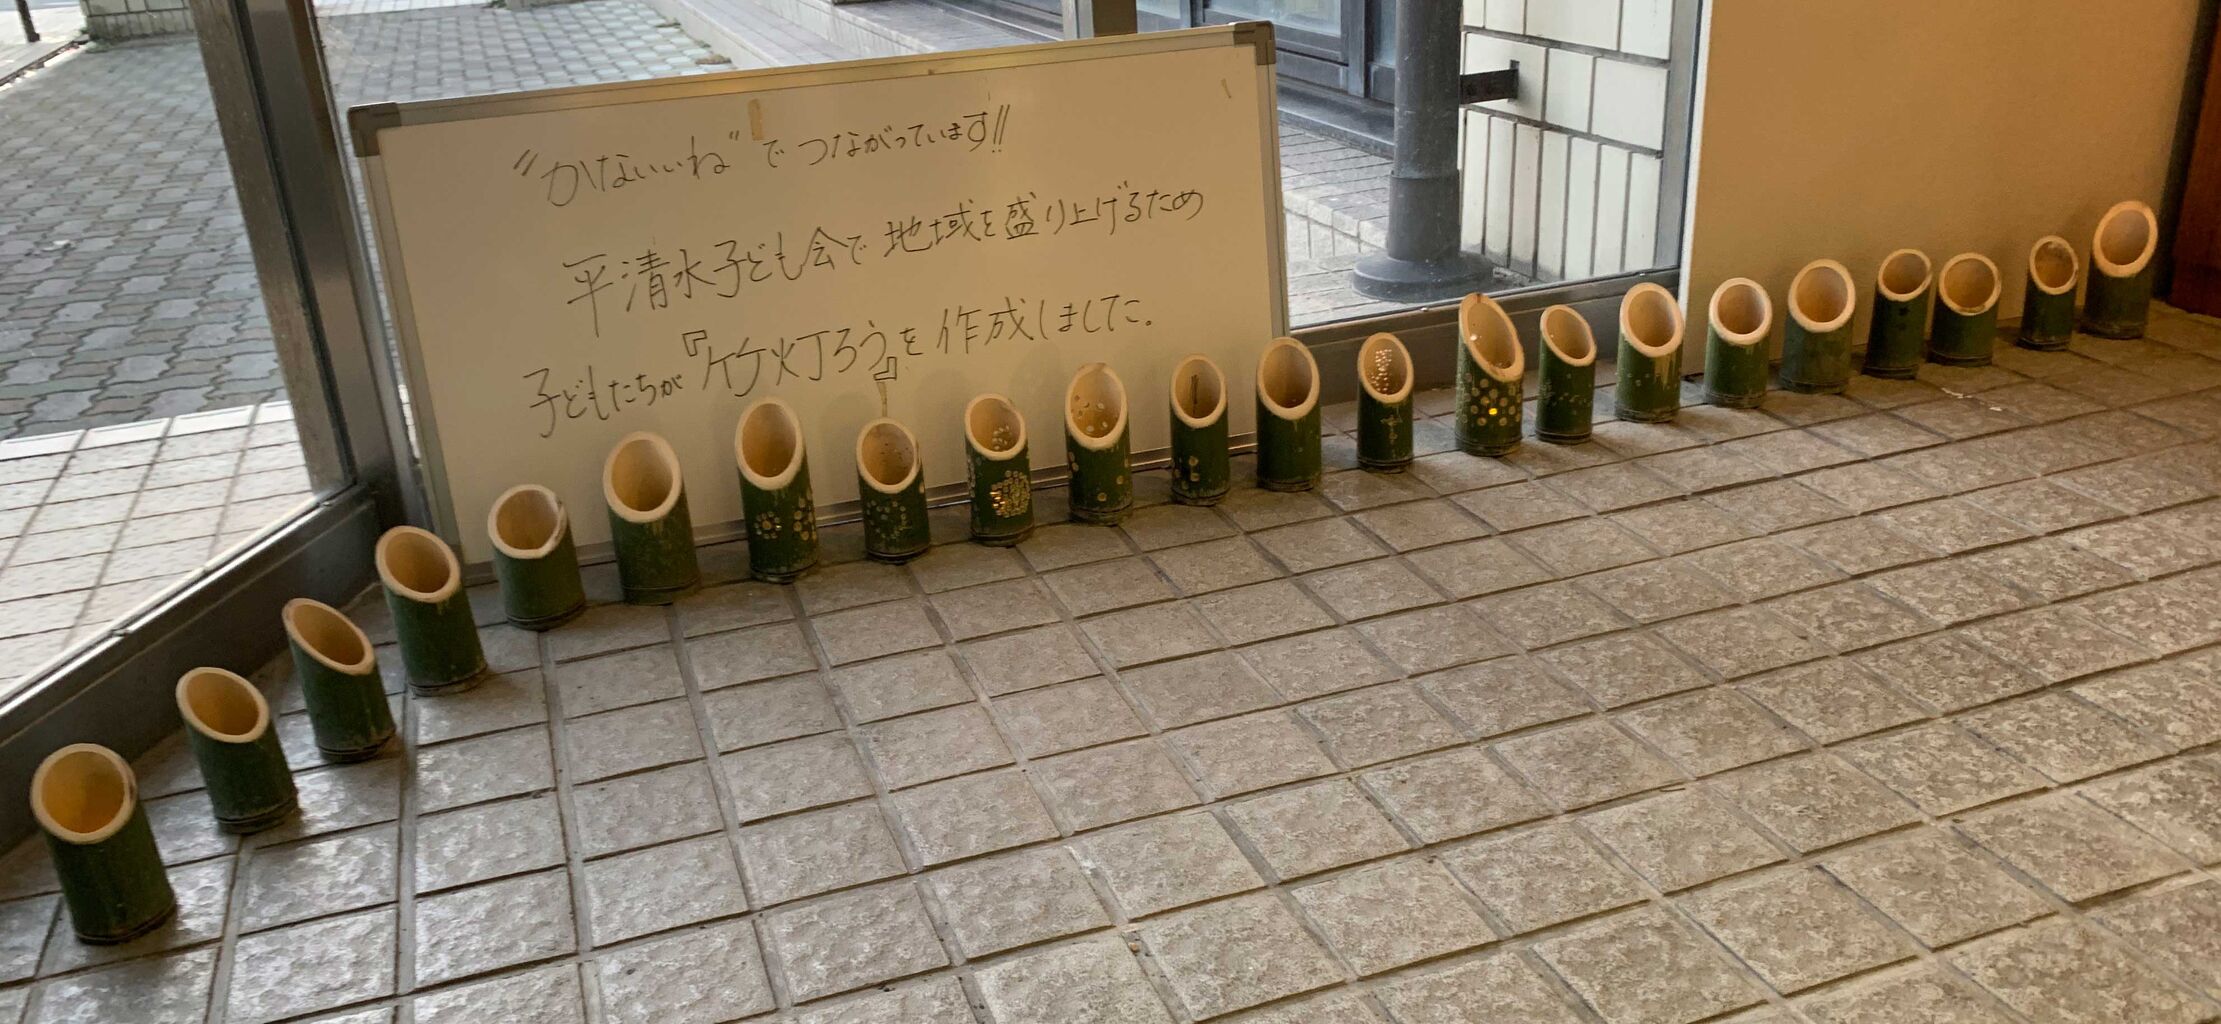 〝かないいね〟でつながっています!!
平清水子ども会で地域を盛り上げるため
子どもたちが『竹灯ろう』を作成しました。